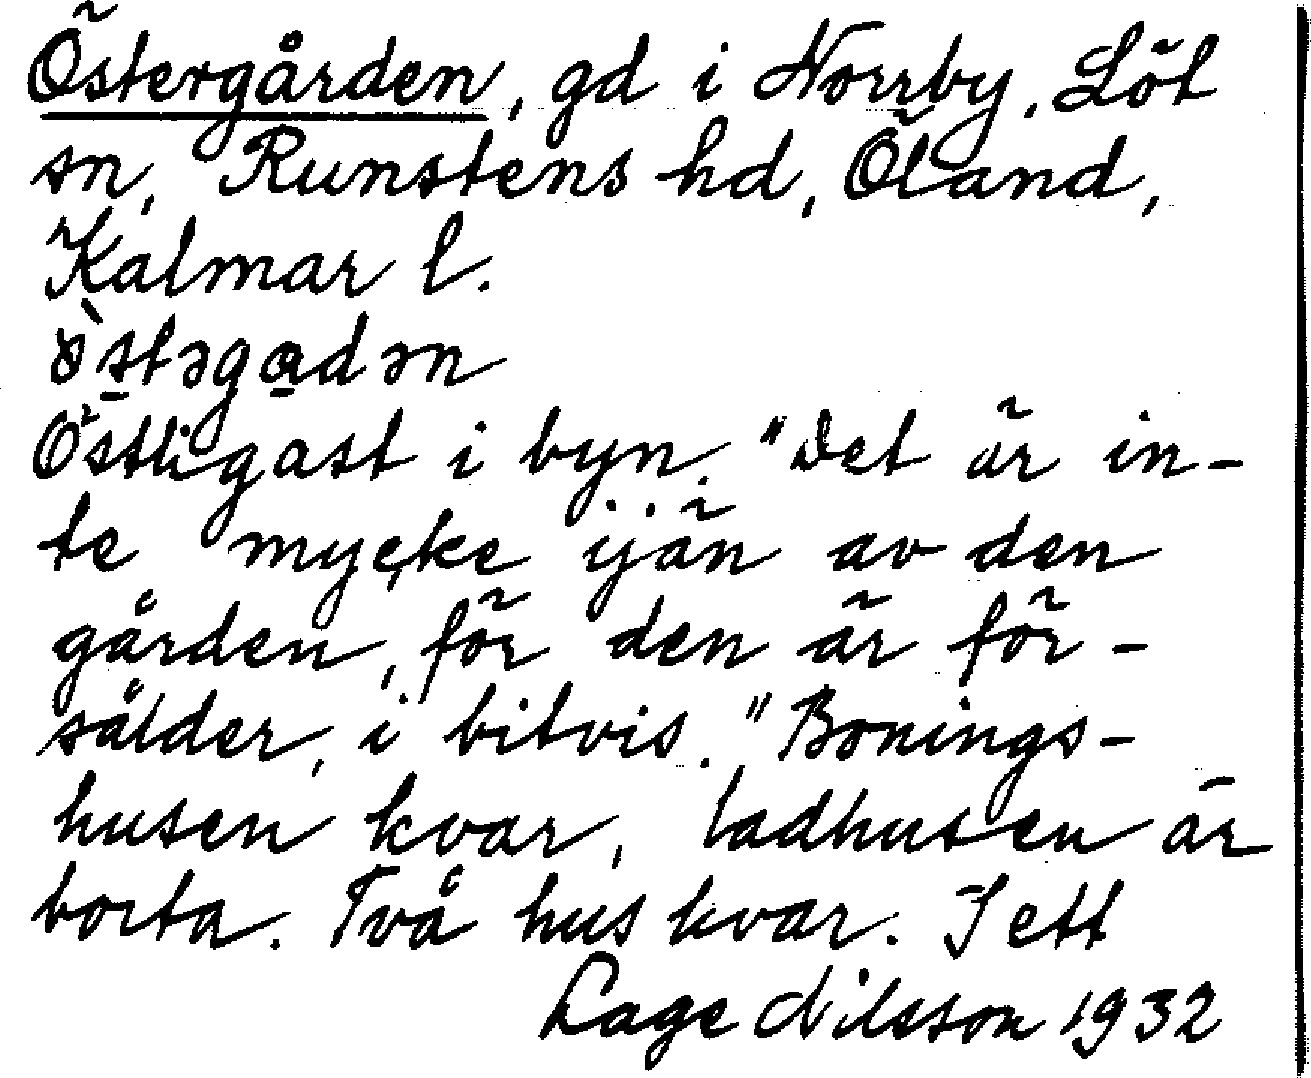 Östergården, gd i Norrby, Löt
sn, Runstens hd, Öland,
Kalmar l.
ö̀stəgadən
Östligast i byn. "Det är in-
te mycke ijän av den
gården, för den är för-
sålder, i bitvis." Bonings-
husen kvar, ladhusen är
borta. Två hus kvar. I ett
Lage Nilsson 1932